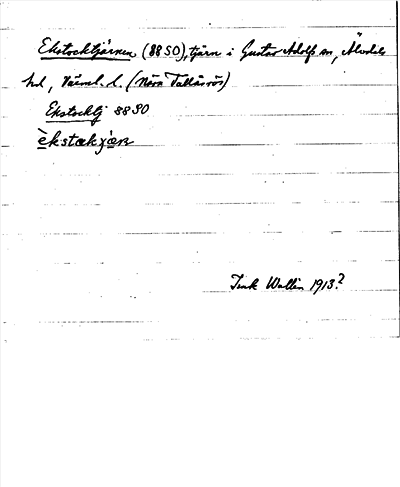 Ekstocktjärnen (88 SO), tjärn i Gustav Adolf sn, Älvdals
hd, Värml. l. (Norra Tallåsrös)
Ekstocktj 88 SO
Wallin 1913?